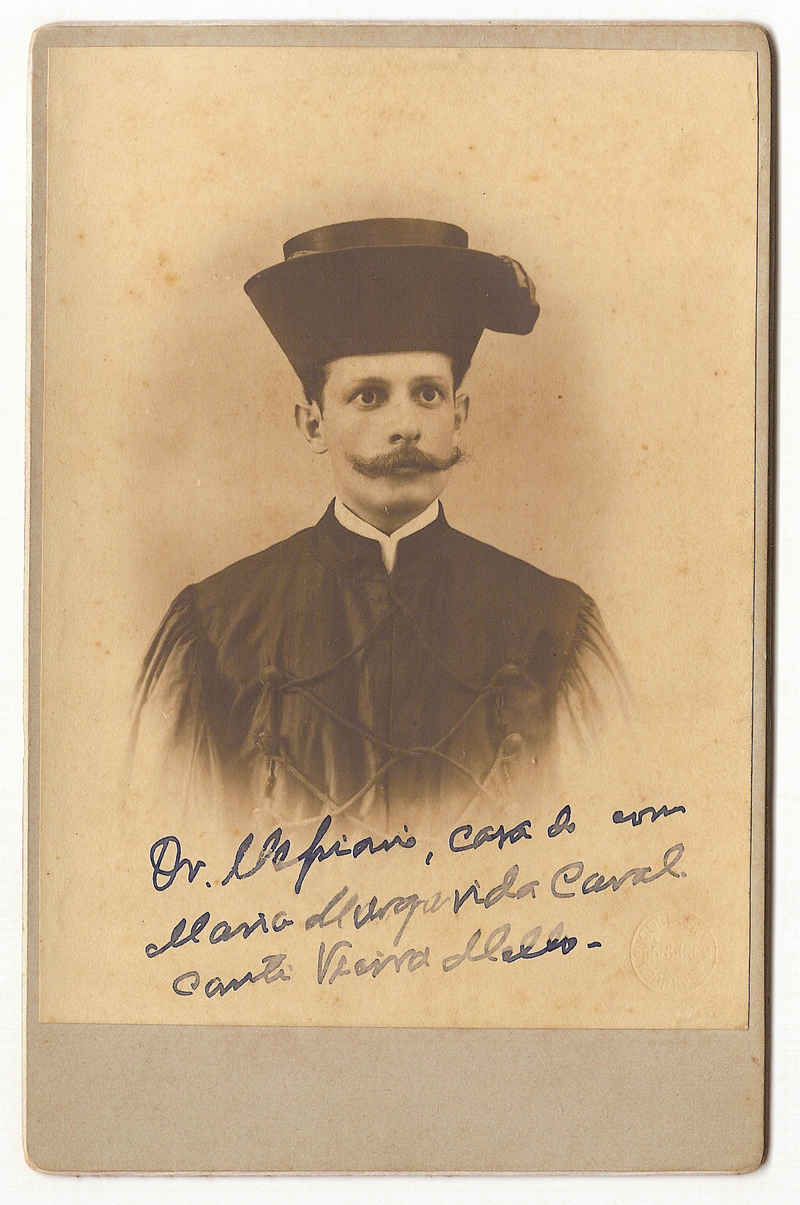 Dr. Ulpiano, casado com
Maria Margarida Caval
canti Vieira Mello-